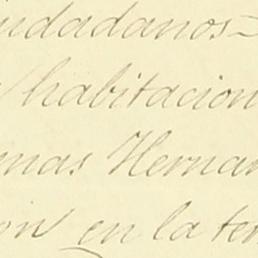 iudadanos=
habitacion
mas Hernan
on en la ter